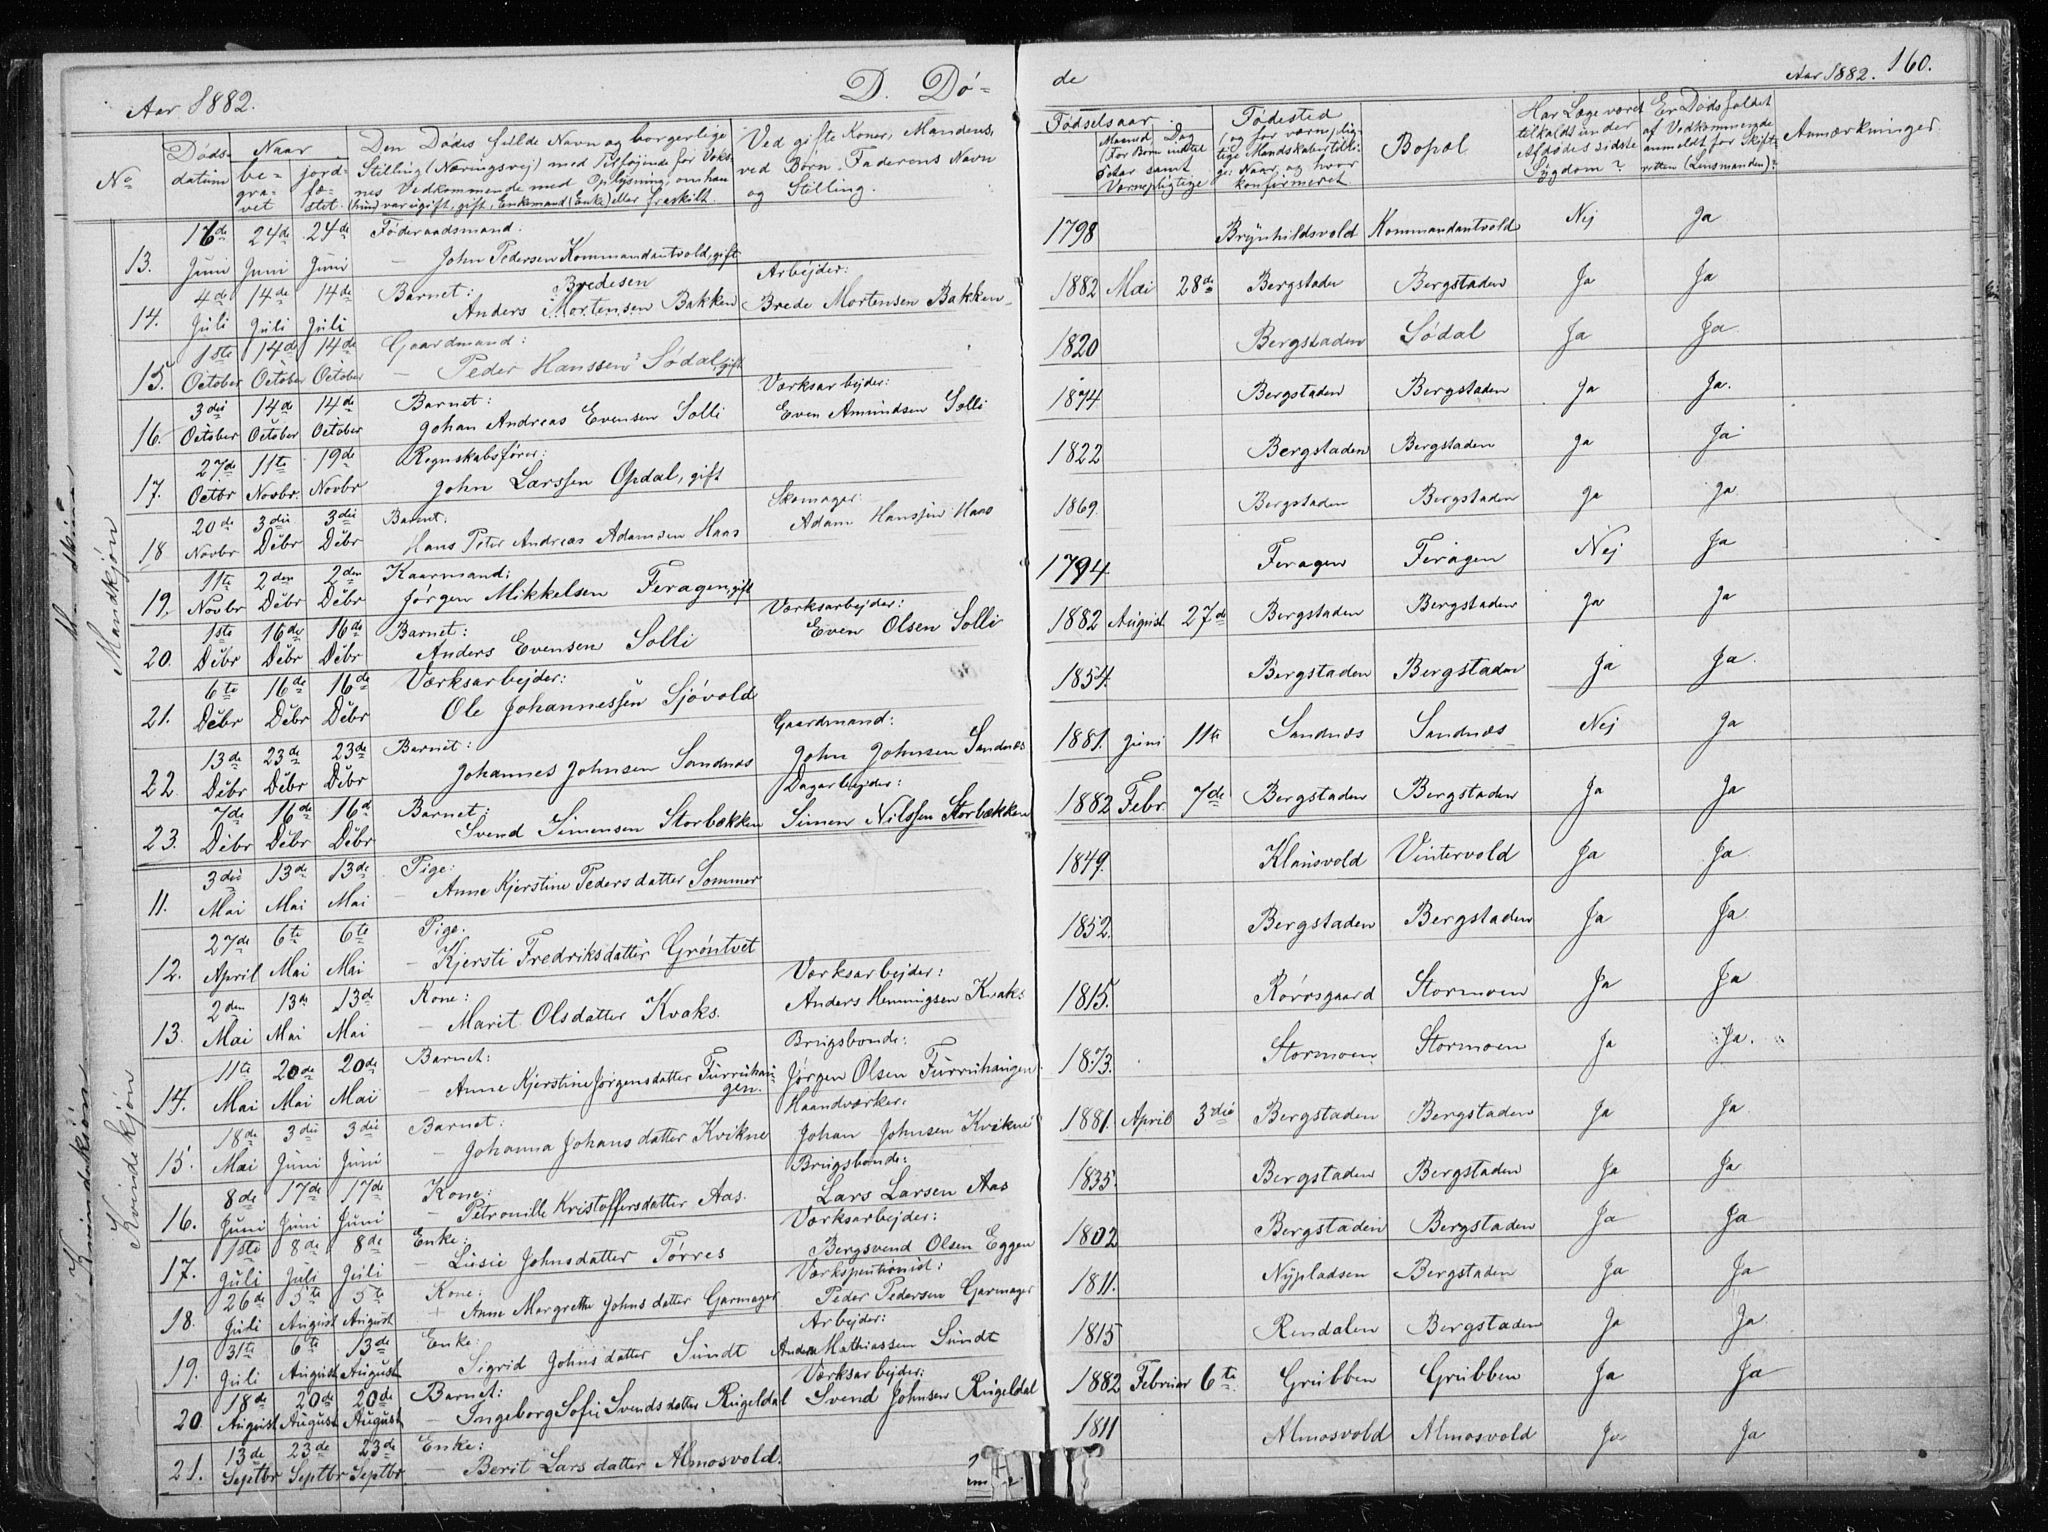 Aar 1882.
D. Dö-
de
Aar 1882. 160.
No
Döds-datum
Naar be-gra-vet
jord-fæ-stet.
Den Dödes fulde Navn og borgerlige
Stilling (Næringsvej) med Tilföjende for Voks-
nes Vedkommende med Oplysning, om han
(hun) var ugift, gift, Enkemand (Enke) eller fraskilt.
Ved gifte Koner, Mandens,
ved Börn, Faderens Navn
og Stilling.
Födselsaar.
Maaned Dag
(for Börn indtil
Værnepligtige
Födested
(og for værneplig-
konfirmeret
Bopæl
Har Læge været
tilkaldt under
Afdödes sidste
Sygdom?
Er Dödsfaldet
af Vedkommende
anmeldt for Skifte-
retten (Lensmanden)?
Anmærkninger.
Mandkjön
13. 16de Juni 24de Juni 24de Juni Föderaadsmand. - John Pedersen Kommandantvold, gift 1798 Brynhildsvold Kommandantvold Nej Ja
14. 4de Juli 14de Juli 14de Juli Barnet: Anders Bredesen Mortensen Bakken Arbejder: Brede Mortensen Bakken 1882 Mai 28de Bergstaden Bergstaden Ja Ja
15. 1ste October 14de October 14de October Gaardmand: - Peder Hanssen Södal, gift 1820 Bergstaden Södal Ja Ja.
16. 3die October 14de October 14de October Barnet: Johan Andreas Evensen Solli Værksarbejder: Even Amundsen Solli 1874 Bergstaden Bergstaden Ja Ja.
17. 27de Octbr 11te Novbr. 19de Novbr Regnskabsförer: John Larssen Opdal, gift 1822 Bergstaden Bergstaden Ja Ja
18 20de Novbr 3die Debr 3die Debr Barnet: Hans Peter Andreas Adamsen Haas Skomager: Adam Hanssen Haas 1869. Bergstaden Bergstaden Ja Ja.
19. 11te Novbr 2den Debr 2den Debr Kaarmand: Jörgen Mikkelsen Feragen, gift 1794 Feragen Feragen Nej Ja
20. 1ste Debr 16de Debr 16de Debr Barnet: Anders Evensen Solli Værksarbejder: Even Olsen Solli 1882 August 27de Bergstaden Bergstaden Ja Ja
21. 6te Debr 16de Debr 16de Debr Værksarbejder: Ole Johannessen Sjövold 1854. Bergstaden Bergstaden Ja Ja.
22 13de Debr 23de Debr 23de Debr Barnet: Johannes Johnsen Sandnæs Gaardmand: John Johnsen Sandnæs 1881. Juni 11te Sandnæs Sandnæs Nej Ja
23. 7de Debr 16de Debr 16d Debr Barnet: Svend Simensen Storbækken Dagarbejder: Simen Nilssen Storbækken 1882 Febr. 7de Bergstaden Bergstaden Ja Ja
Kvindekjön
11. 3die Mai 13de Mai 13de Mai Pige: Anne Kjerstine Pedersdatter Sommer 1849. Klausvold Vintervold Ja Ja
12. 27de April 6te Mai 6te Mai Pige. - Kjersti Fredriksdatter Gröntvet 1852. Bergstaden Bergstaden Ja Ja
13. 2den Mai 13de Mai 13de Mai Kone: - Marit Olsdatter Kvaks. Værksarbejder: Anders Henningsen Kvaks 1815. Rörosgaard Stormoen Ja Ja
14. 11te Mai 20de Mai 20de Mai Barnet: - Anne Kjerstine Jörgensdatter Furruhau-gen. Brugsbonde: Jörgen Olsen Furruhaugen 1873. Stormoen Stormoen Ja Ja.
15. 18de Mai 3die Juni 3die Juni Barnet: - Johanna Johansdatter Kvikne Haandværker: Johan Johnsen Kvikne 1881. April 3die Bergstaden Bergstaden Ja Ja
16. 8de Juni 17de Juni 17de Juni Kone: - Petronille Kristoffersdatter Aas. Brugsbonde: Lars Larsen Aas 1835. Bergstaden Bergstaden Ja Ja
17. 1ste Juli 8de Juli 8de Juli Enke: - Lusie Johnsdatter Törres Værksarbejder: Bergsvend Olsen Eggen 1802 Bergstaden Bergstaden Ja Ja
18. 26de Juli 5te August 5te August Kone: + Anne Margrethe Johnsdatter Garmager Værkspentionist: Peder Pedersen Garmager 1811. Nypladsen Bergstaden Ja Ja
19. 31te Juli 6te August 13de August Enke: Sigrid Johnsdatter Sundt Arbejder: Anders Mathiassen Sundt 1815 Rendalen Bergstaden Ja Ja
20 18de August 20de August 20de August Barnet: - Ingeborg Sofie Svendsdatter Rugeldal Værksarbejder: Svend Johnsen Rugeldal 1882 Februar 6te Grubben Grubben Ja Ja
21. 13de Septbr 23de Septbr 23de Septbr. Enke: Berit Larsdatter Almosvold. 1811 Almosvold Almosvold Ja Ja